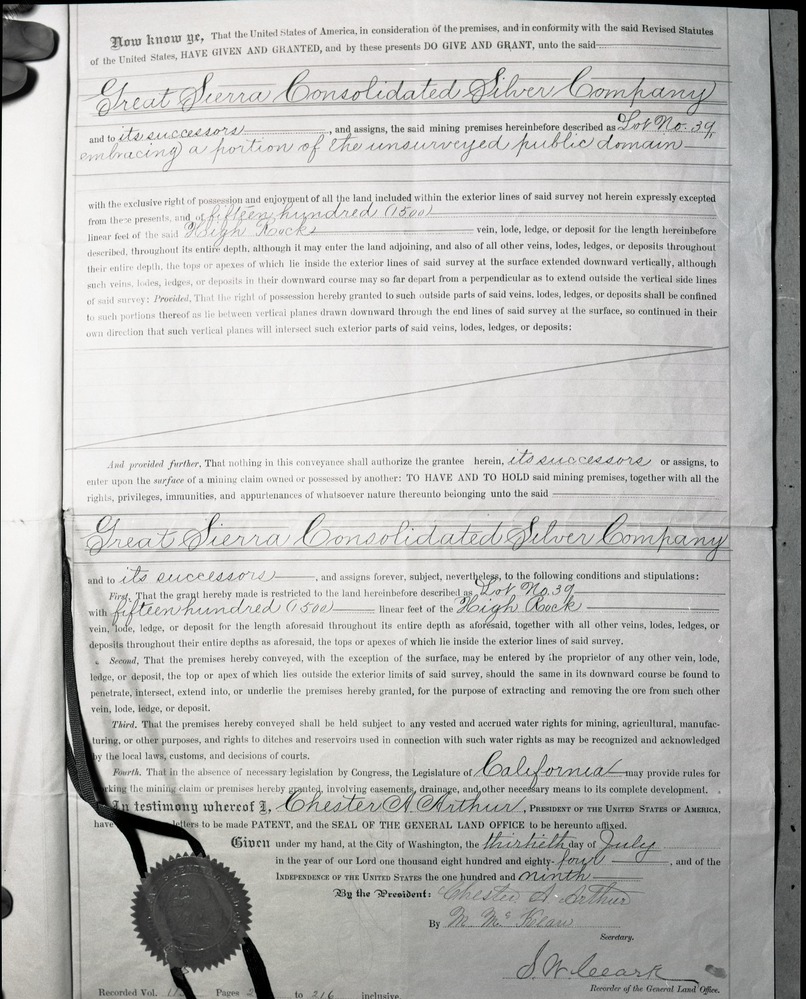 Now know ye, That the United States of America, in consideration of the premises, and in conformity with the said Revised Statutes
of the United States, HAVE GIVEN AND GRANTED, and by these presents DO GIVE AND GRANT, unto the said
Great Sierra Consolidated Silver Company
and to its successors, and assigns, the said mining premises hereinbefore described as Lot No. 39,
embracing a portion of the unsurveyed public domain
with the exclusive right of possession and enjoyment of all the land included within the exterior lines of said survey not herein expressly excepted
from these presents, and of fifteen hundred (1500)
linear feet of the said High Rock vein, lode, ledge, or deposit for the length hereinbefore
described, throughout its entire depth, although it may enter the land adjoining, and also of all other veins, lodes, ledges, or deposits throughout
their entire depth, the tops or apexes of which lie inside the exterior lines of said survey at the surface extended downward vertically, although
such veins, lodes, ledges, or deposits in their downward course may so far depart from a perpendicular as to extend outside the vertical side lines
of said survey: Provided, That the right of possession hereby granted to such outside parts of said veins, lodes, ledges, or deposits shall be confined
to such portions thereof as lie between vertical planes drawn downward through the end lines of said survey at the surface, so continued in their
own direction that such vertical planes will intersect such exterior parts of said veins, lodes, ledges, or deposits:
And provided further, That nothing in this conveyance shall authorize the grantee herein, its successors or assigns, to
enter upon the surface of a mining claim owned or possessed by another: TO HAVE AND TO HOLD said mining premises, together with all the
rights, privileges, immunities, and appurtenances of whatsoever nature thereunto belonging unto the said
Great Sierra Consolidated Silver Company
and to its successors, and assigns forever, subject, nevertheless, to the following conditions and stipulations:
First, That the grant hereby made is restricted to the land hereinbefore described as Lot No. 39
with fifteen hundred (1500) linear feet of the High Rock
vein, lode, ledge, or deposit for the length aforesaid throughout its entire depth as aforesaid, together with all other veins, lodes, ledges, or
deposits throughout their entire depths as aforesaid, the tops or apexes of which lie inside the exterior lines of said survey.
Second, That the premises hereby conveyed, with the exception of the surface, may be entered by the proprietor of any other vein, lode,
ledge, or deposit, the top or apex of which lies outside the exterior limits of said survey, should the same in its downward course be found to
penetrate, intersect, extend into, or underlie the premises hereby granted, for the purpose of extracting and removing the ore from such other
vein, lode, ledge, or deposit.
Third. That the premises hereby conveyed shall be held subject to any vested and accrued water rights for mining, agricultural, manufac-
turing, or other purposes, and rights to ditches and reservoirs used in connection with such water rights as may be recognized and acknowledged
by the local laws, customs, and decisions of courts.
Fourth. That in the absence of necessary legislation by Congress, the Legislature of California may provide rules for
rking the mining claim or premises hereby granted, involving easements, drainage, and other necessary means to its complete development.
In testimony whereof I, Chester A. Arthur, PRESIDENT OF THE UNITED STATES OF AMERICA,
have letters to be made PATENT, and the SEAL OF THE GENERAL LAND OFFICE to be hereunto affixed.
Given under my hand, at the City of Washington, the thirtieth day of July
in the year of our Lord one thousand eight hundred and eighty-four, and of the
INDEPENDENCE OF THE UNITED STATES the one hundred and ninth
By the President: Chester A. Arthur
By M. McKean
Secretary.
S. W. Clark
Recorder of the General Land Office.
Recorded Vol. Pages to 216 inclusive.